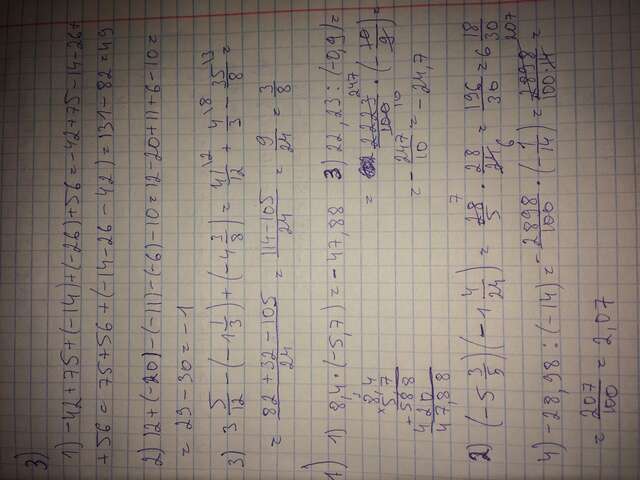 3)
1) -42+75+(-14)+(-26)+56=-42+75-14-26+
+56= 75+56+(-14-26-42)=131-82=49
2) 12+(-20)-(-11)-(-6)-10=12-20+11+6-10=
= 29-30=-1
3) 3 5/12 - (-1 1/3) + (-4 3/8) = 41\2/12 + 4\8/3 - 35\3/8 =
= 82+32-105/24 = 114-105/24 = 9/24 = 3/8
1) 1) 8,4 · (-5,7) = -47,88
8,4
×5,7
+588
420
47,88
3) 22,23 : (-0,9)=
= 2223 247/100 · (-10/9)=
= -247/10 = -24,7
2) (-5 3/5)(-1 4/24) = 28 7/5 · 28/24 6 = 196/30 = 6 18/30
4) -28,98 : (-14) = -2898/100 · (-1/14) = 2898 207/100·14 =
= 207/100 = 2,07